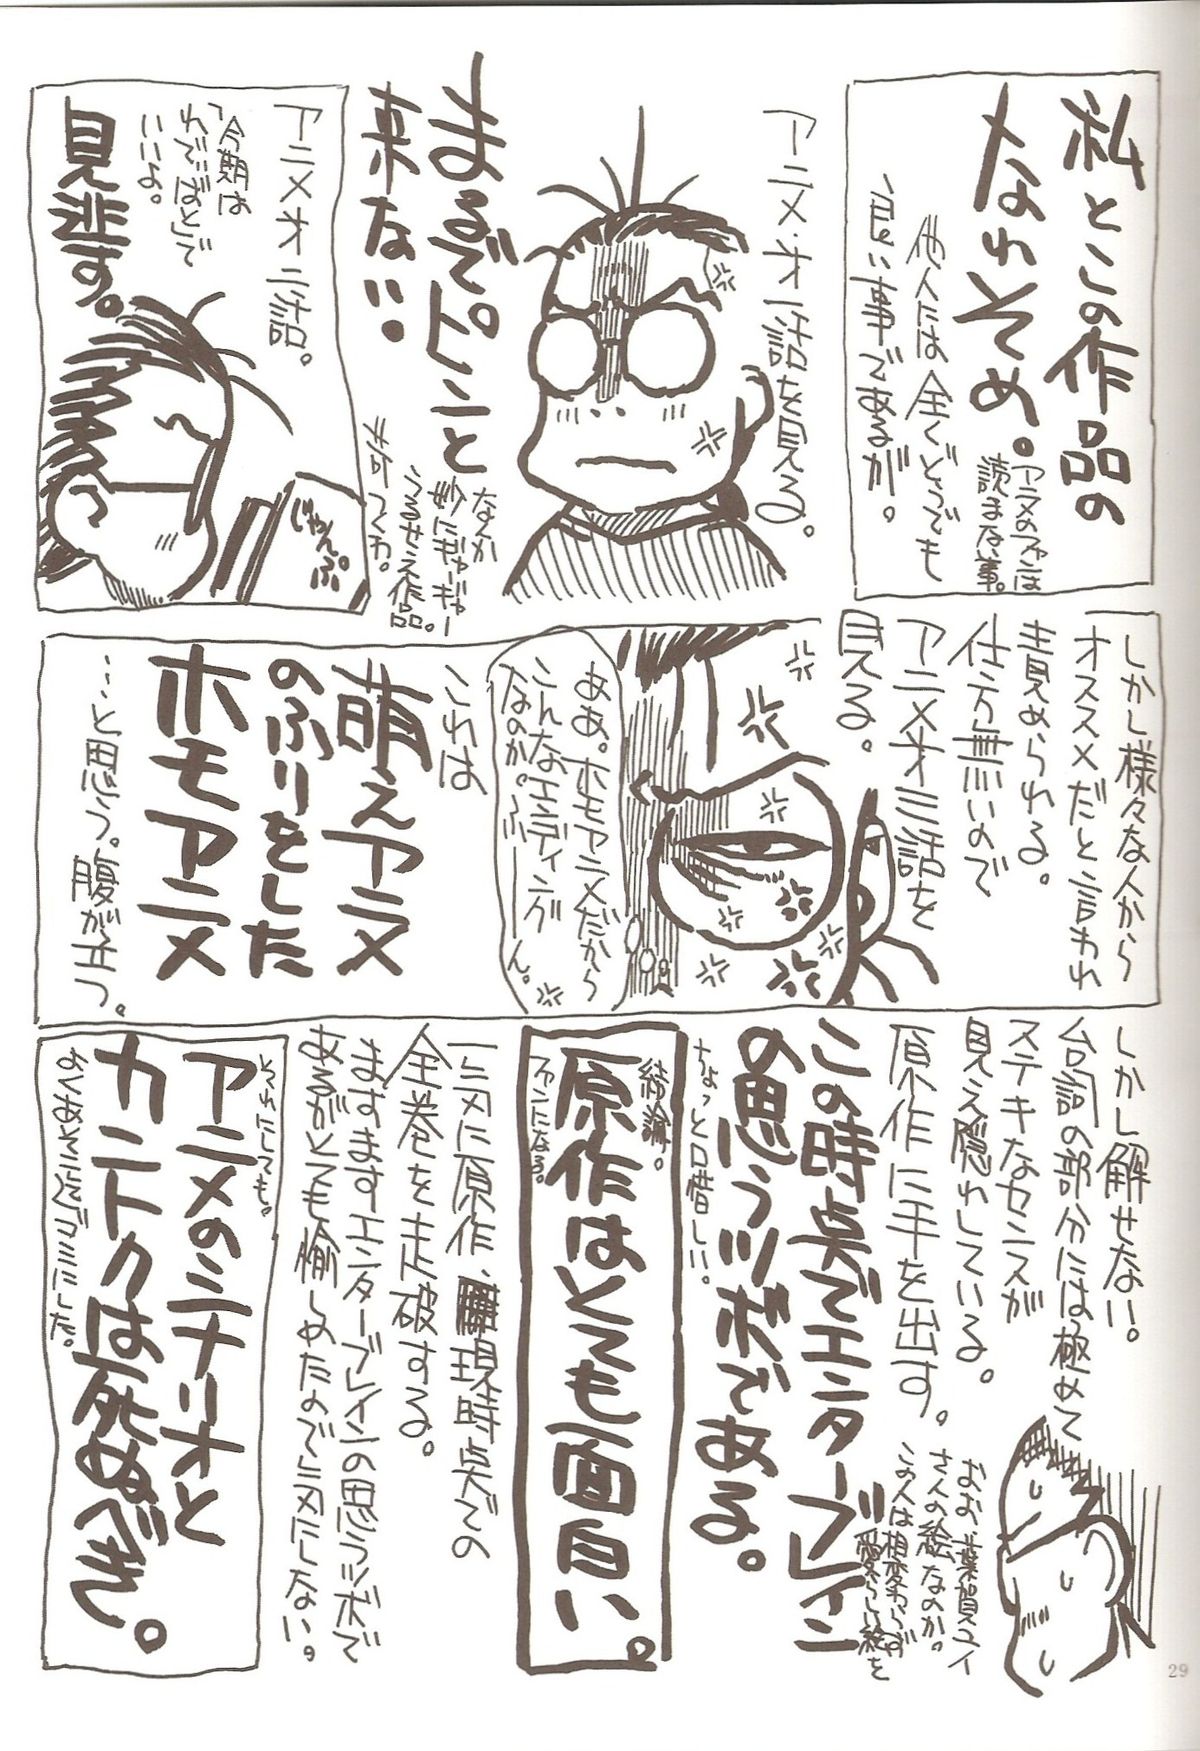 私とこの作品の
なれそめ。
アニメのファンは
読まない事。
他人には全くどうでも
良い事であるが。
アニメ・オ一話を見る。
まるでピンと
来ない。
なんか
妙にギャーギャー
うるせえ作品。
アニメオ二話。
「今期は
わでぃばとで
いいよ。
見逃す。
じゃんぷ
しかし様々な人から
オススメだと言われ
責められる。
仕方無いので
アニメオ三話を
見る。
ああ。ホモアニメだから
こんなエンディング
なのか。ふーーん。
これは
萌えアニメ
のふりをした
ホモアニメ
…と思う。腹が立つ。
しかし解せない。
台詞の部分には極めて
ステキなセンスが
見え隠れしている。
原作に手を出す。
おお、葉賀ユイ
さんの絵なのか。
この人は相変わらず
愛らしい絵を
この時点でエンターブレイン
の思うツボである。
ちょっと口惜しい。
結論。
原作はとても面白い。
ファンになる。
一気に原作、現時点での
全巻を走破する。
ますますエンターブレインの思うツボで
あるがとても愉しめたので気にしない。
それにしても。
アニメのシナリオと
カントクは死ぬべき。